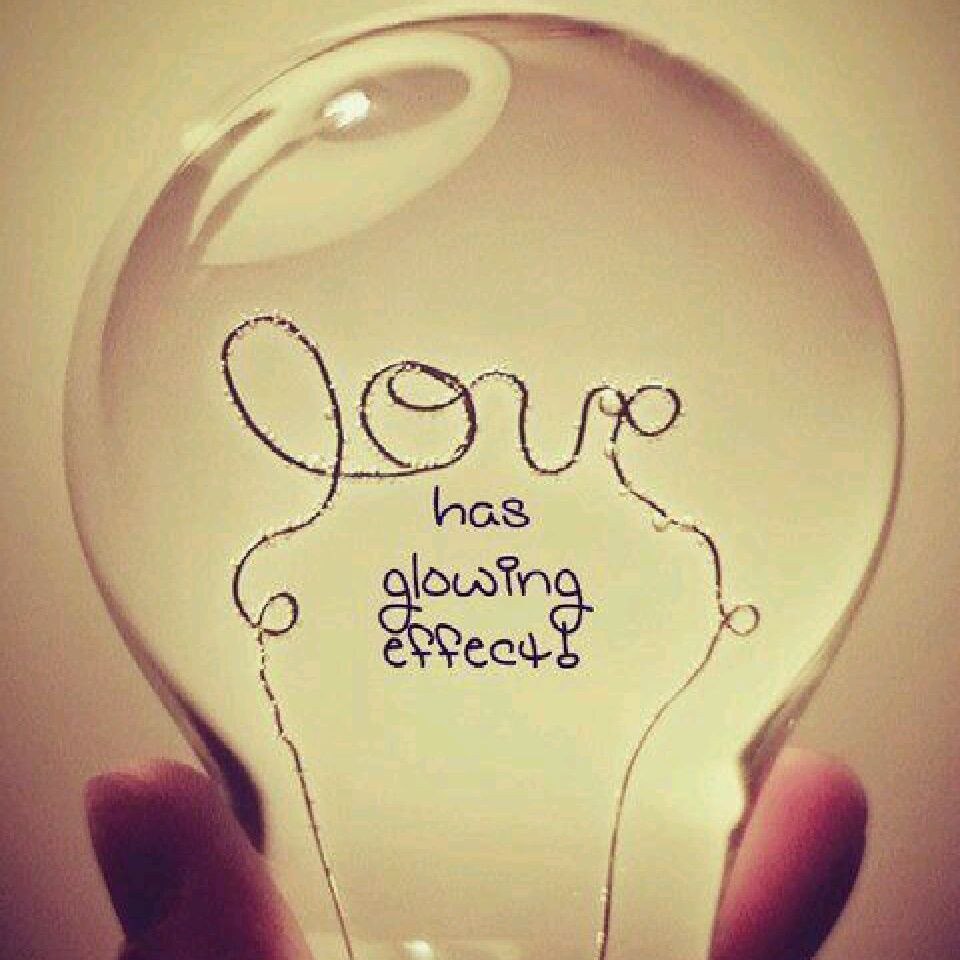 love
has
glowing
effect!